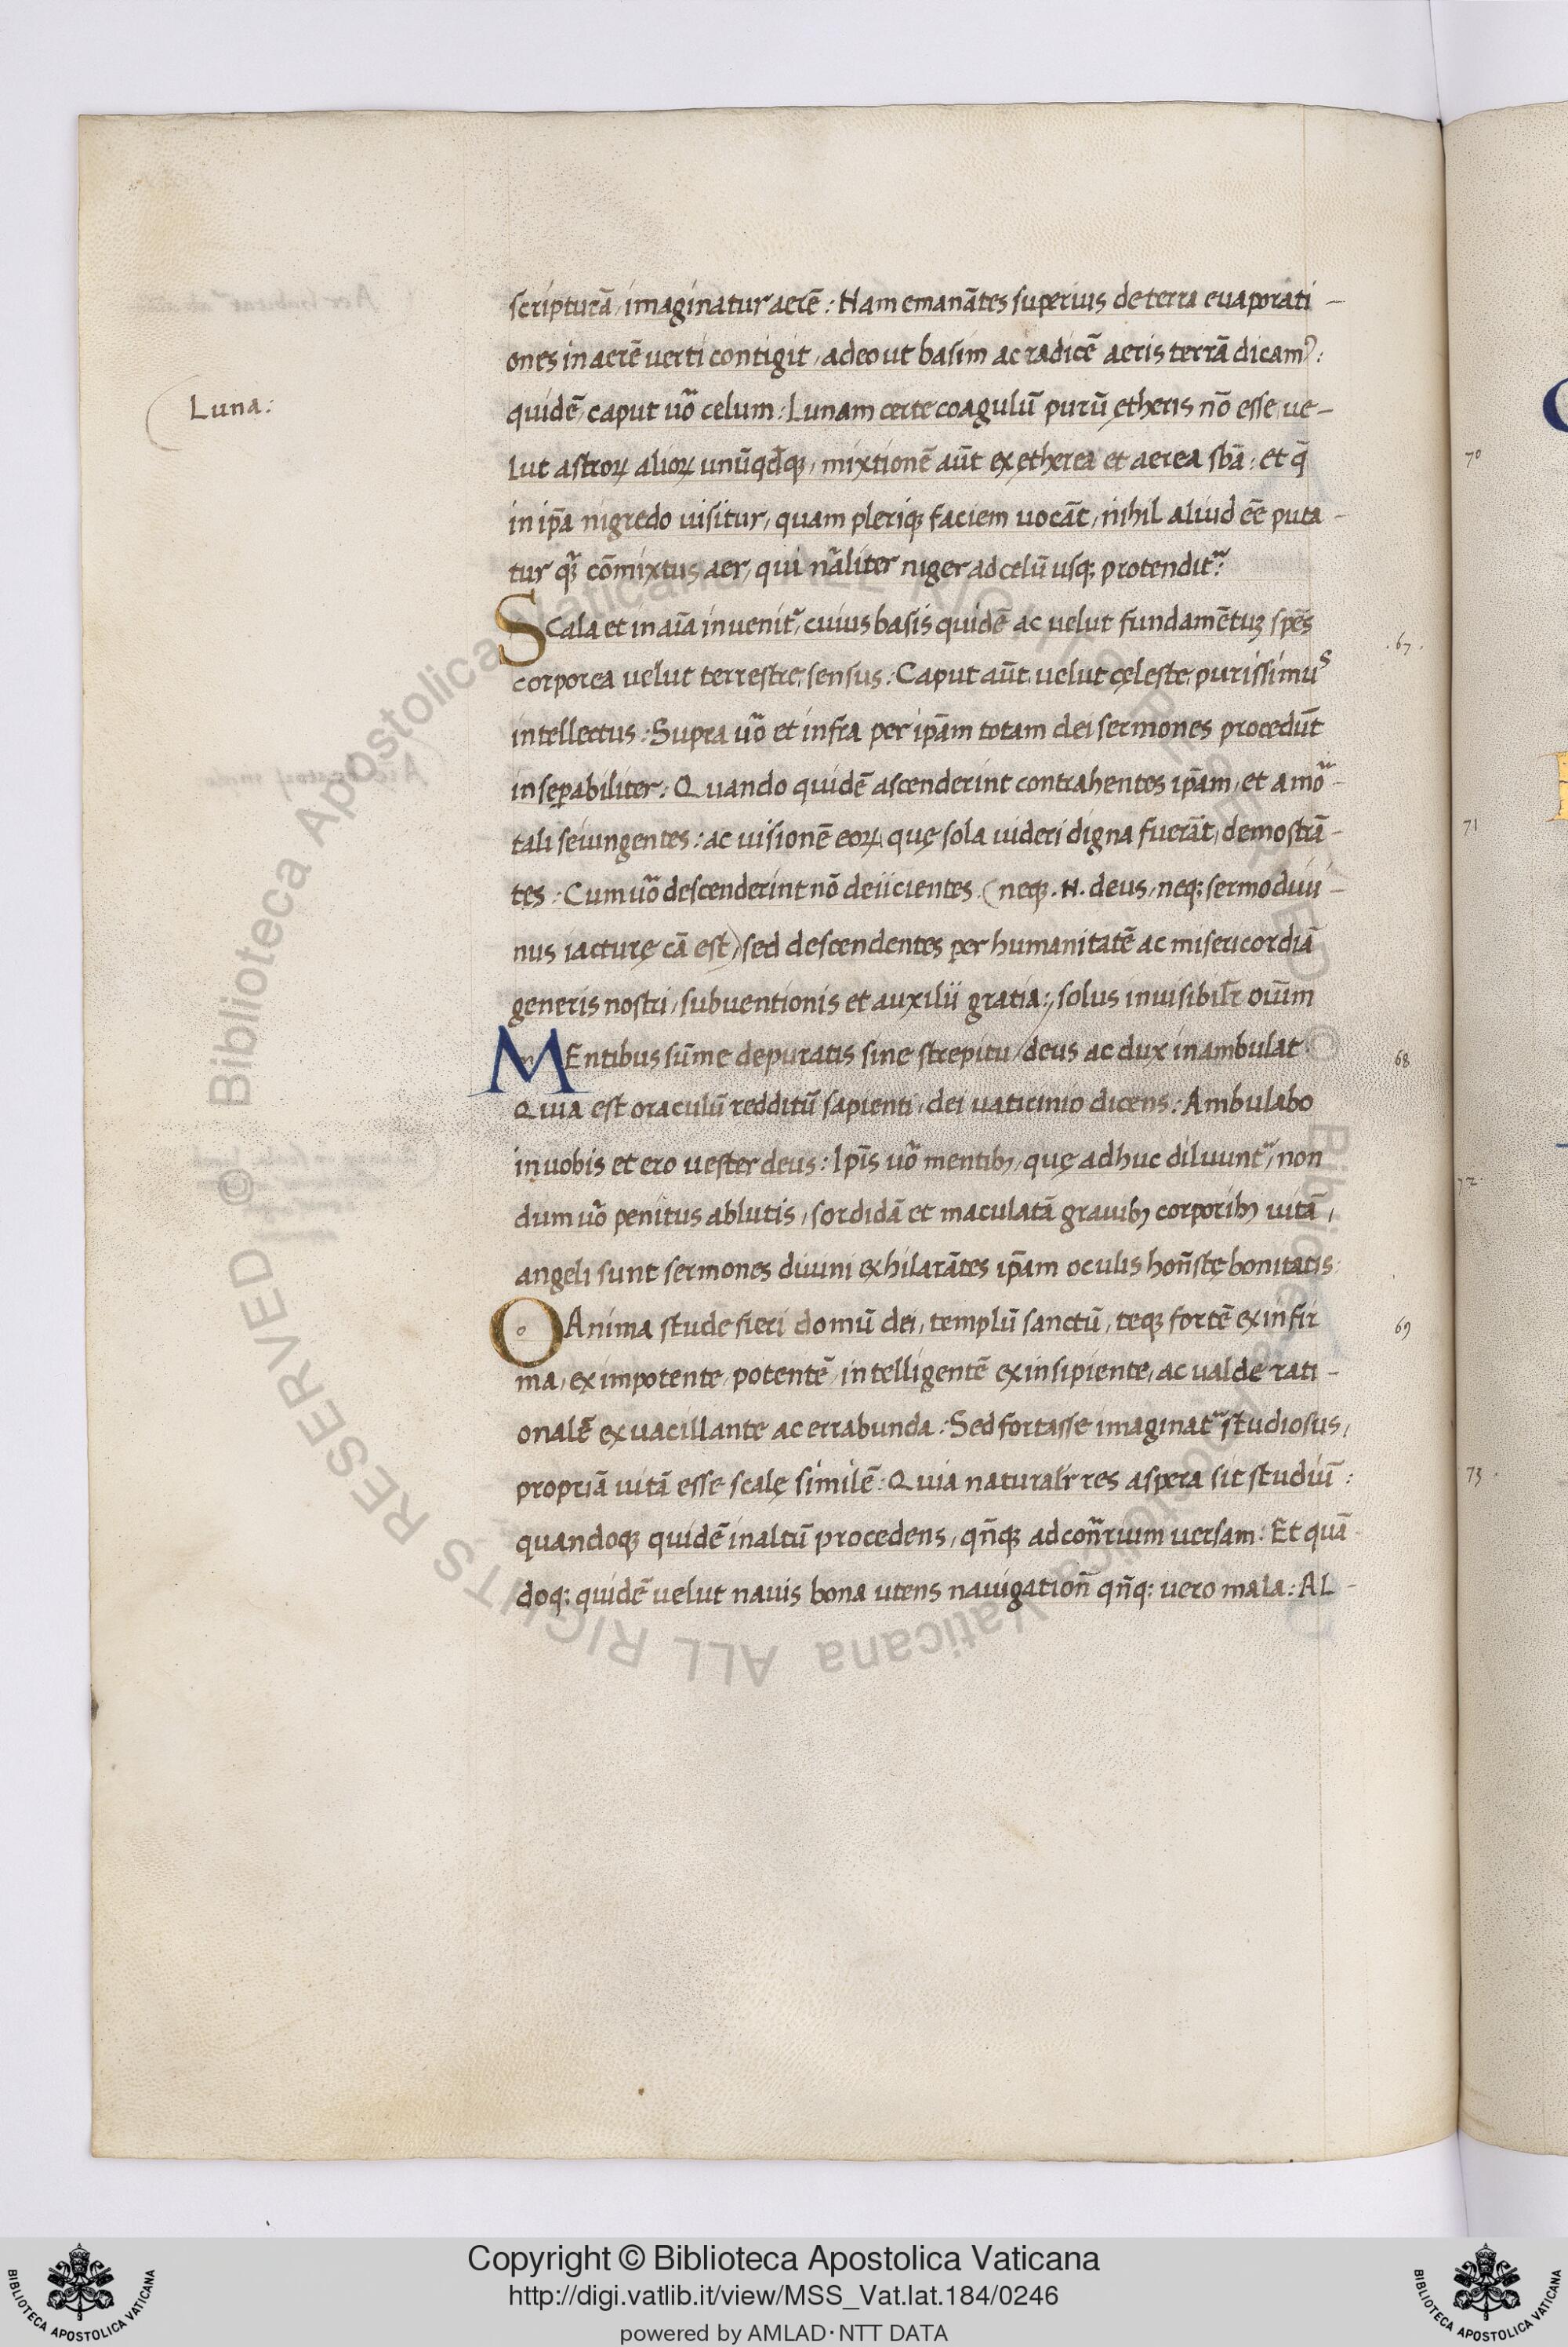 scripturā, imaginatur aerē: Nam emanātes superius de terra euaporati-
ones in aerē uerti contigit, adeo ut basim ac radicē aeris terrã dicamꝰ:
Luna:
quidē, caput uo᷑ celum: Lunam certe coagulū purū ętheris nō esse, ue-
lut astroꝝ alioꝝ unūqđꝙ, mixtionē aūt ex ętherea et aerea sbā: et q̄
in ip̄a nigredo uisitur, quam pleriqꝫ faciem uocāt, nihil aliud eē puta-
tur q᷑ cōmixtus aer, qui nāliter niger ad celū usqꝫ protendit᷑:
SCala et in aīa inuenit᷑, cuius basis quidē ac uelut fundamētuꝫ spēs
.67.
corporea uelut terrestre, sensus: Caput aūt, uelut cęleste, purissimus
intellectus: Supra uo᷑ et infra per ip̄am totam dei sermones procedūt
inseꝑabiliter: Quando quidē ascenderint contrahentes ip̄am, et a mo᷑-
tali seiungentes: ac uisionē eoꝝ, quę sola uideri digna fuerāt, demostrā-
tes: Cum uo᷑ descenderint nō deiicientes (neqꝫ .N. deus, neqꝫ sermo diui-
nus iacturę cā est) sed descendentes per humanitatē ac misericordiā
generis nostri, subuentionis et auxilii gratia:, solus inuisibilr̄ oīum
MEntibus sūme depuratis sine strepitu, deus ac dux inambulat:
68
Quia est oraculū redditū sapienti, dei uaticinio dicens: Ambulabo
in uobis et ero uester deus: Ip̄is uo᷑ mentibꝫ, quę adhuc diluunt᷑, non
dum uo᷑ penitus ablutis, sordidā et maculatā grauibꝫ corporibꝫ uitā,
angeli sunt sermones diuini exhilarātes ip̄am oculis hon̄stę bonitatis:
O Anima stude fieri domū dei, templū sanctū, teqꝫ fortē ex infir
69
ma, ex impotente, potentē, intelligentē ex insipiente, ac ualde rati-
onalē ex uacillante ac errabunda: Sed fortasse imaginat᷑ studiosus,
propriā uitā esse scalę similē: Quia naturalr̄ res aspera sit studiū:
quandoqꝫ quidē in altū procedens, qn̄qꝫ ad con᷑rium uersam: Et quā-
doqꝫ quidē uelut nauis bona utens nauigation̄ qn̄qꝫ uero mala: AL-
70
71
72.
73.
Copyright © Biblioteca Apostolica Vaticana
http://digi.vatlib.it/view/MSS_Vat.lat.184/0246
powered by AMLAD·NTT DATA
BIBLIOTECA APOSTOLICA VATICANA
BIBLIOTECA APOSTOLICA VATICANA
© Biblioteca Apostolica Vaticana ALL RIGHTS RESERVED © Biblioteca Apostolica Vaticana ALL RIGHTS RESERVED